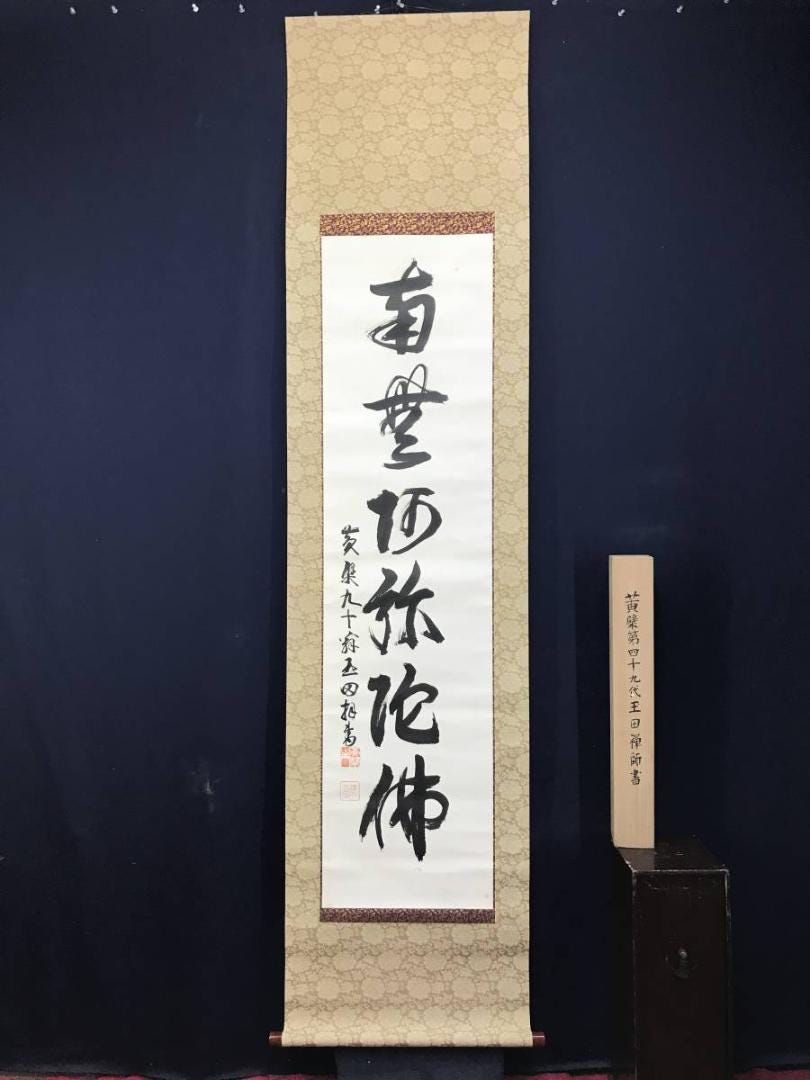 南無阿弥陀佛
黄檗九十翁玉田拝書
黄檗第四十九代玉田禅師書